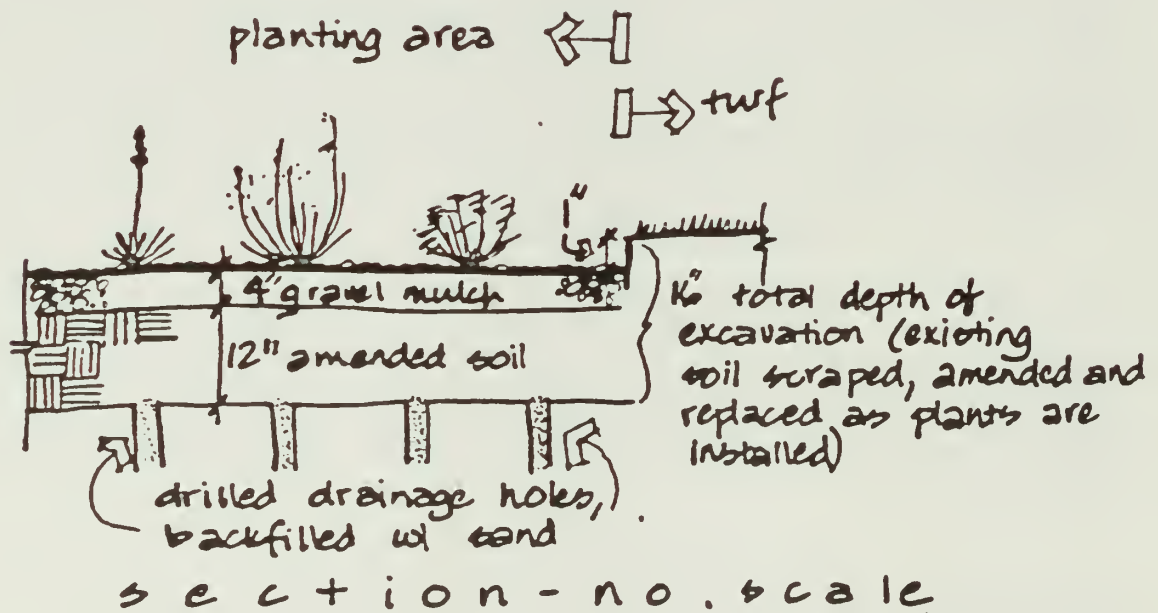 planting area
turf
1"
4" gravel mulch
12" amended soil
16" total depth of
excavation (existing
soil scraped, amended and
replaced as plants are
installed)
drilled drainage holes,
backfilled w/ sand
section - no scale